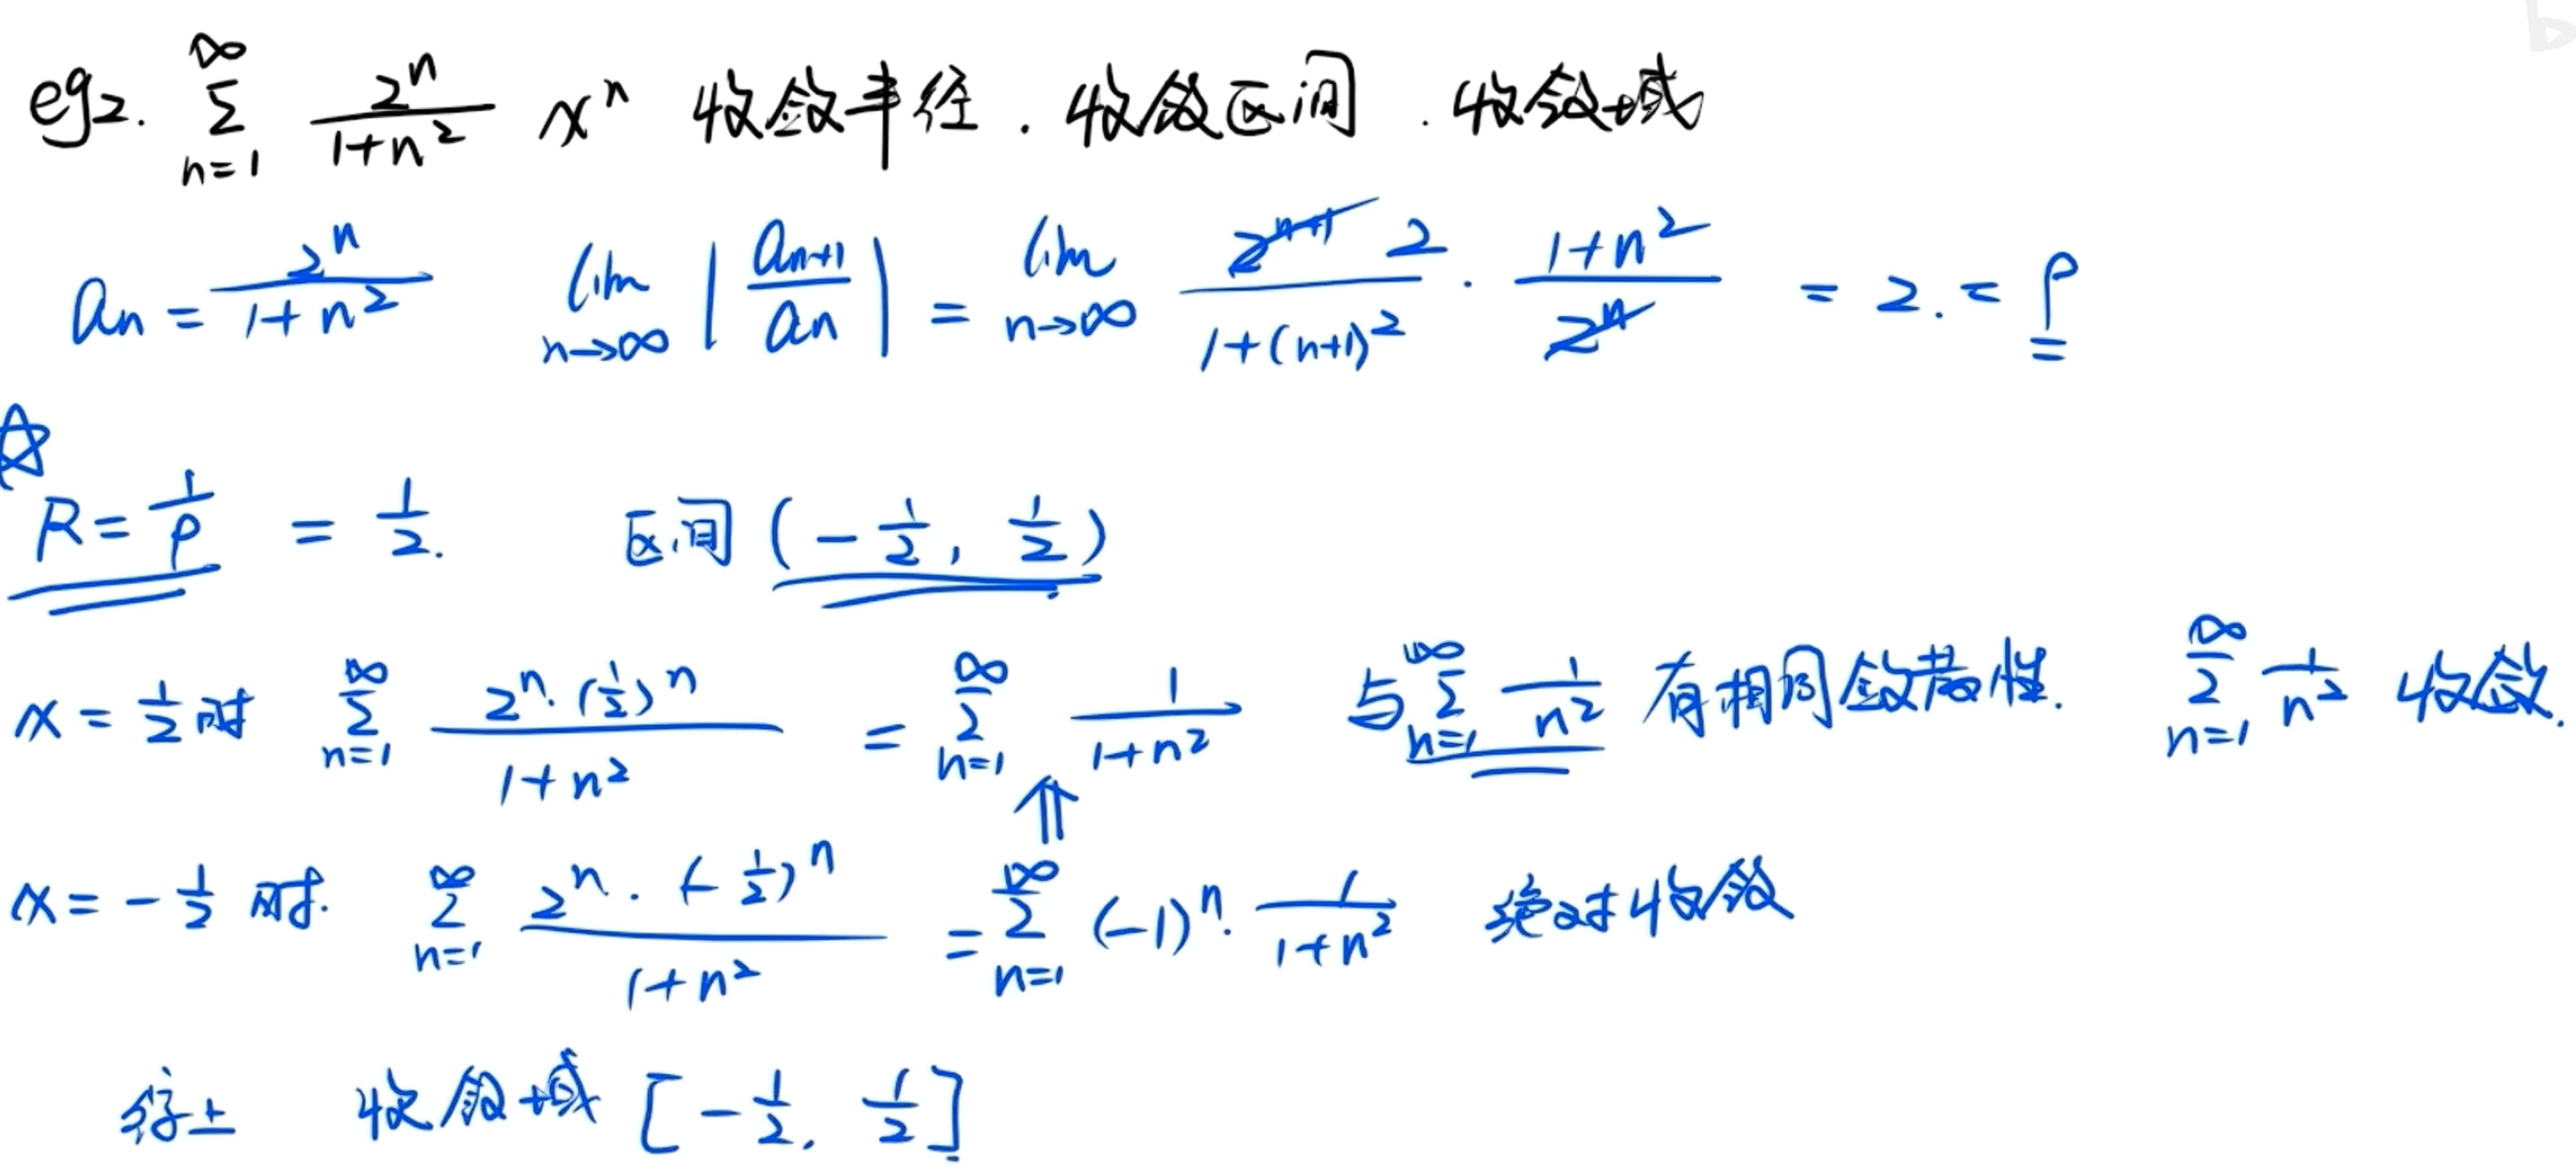 eg2. $\sum_{n=1}^{\infty} \frac{2^n}{1+n^2} x^n$ 收敛半径.收敛区间.收敛域
$a_n = \frac{2^n}{1+n^2}$ $\lim_{n\to\infty} \left|\frac{a_{n+1}}{a_n}\right| = \lim_{n\to\infty} \frac{2^{n+1} 2}{1+(n+1)^2} \cdot \frac{1+n^2}{2^n} = 2. = \rho$
☆
$R = \frac{1}{\rho} = \frac{1}{2}.$ 区间 $(-\frac{1}{2}, \frac{1}{2})$
$x = \frac{1}{2}$时 $\sum_{n=1}^{\infty} \frac{2^n \cdot (\frac{1}{2})^n}{1+n^2} = \sum_{n=1}^{\infty} \frac{1}{1+n^2}$ 与$\sum_{n=1}^{\infty} \frac{1}{n^2}$ 有相同敛散性. $\sum_{n=1}^{\infty} \frac{1}{n^2}$ 收敛.
⇑
$x = -\frac{1}{2}$ 时. $\sum_{n=1}^{\infty} \frac{2^n \cdot (-\frac{1}{2})^n}{1+n^2} = \sum_{n=1}^{\infty} (-1)^n \cdot \frac{1}{1+n^2}$ 绝对收敛
综上 收敛域 $[-\frac{1}{2}, \frac{1}{2}]$